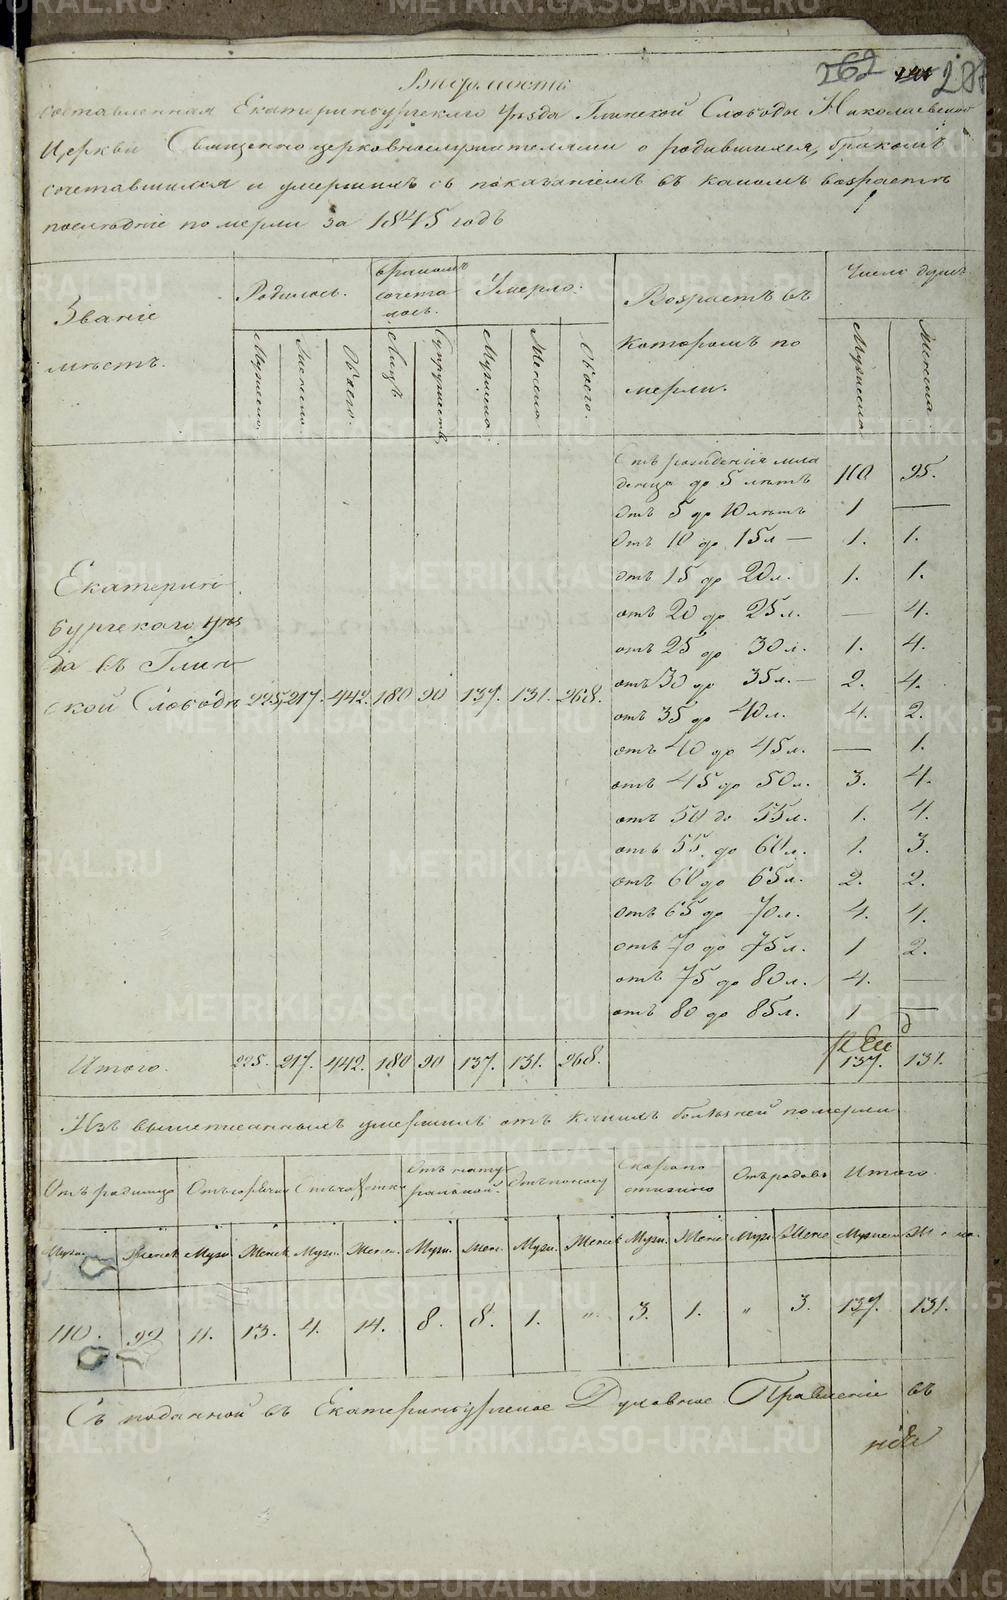 262 287
Вѣдомость
составленная Екатеринбургскаго Уѣзда Глинской Слободы Николаевской
Церкви Священноцерковнослужителями о родившихся, бракомъ
сочетавшихся и умершихъ съ показаніемъ въ какомъ возрастѣ
послѣдніе померли за 1845 годъ
Званіе мѣстъ. Родилось. бракомъ сочеталось. Умерло. Возрастъ въ которомъ померли. Число душъ
Мужеска. Женска. Обоего. Лицъ Супружествъ Мужеска Женска Обоего. Мужеска Женска
Отъ рожденія мла
денца до 5 лѣтъ 110 95.
Отъ 5 до 10 лѣтъ 1 —
Отъ 10 до 15 л — 1. 1.
отъ 15 до 20 л. 1. 1.
отъ 20 до 25 л. — 4.
отъ 25 до 30 л. 1. 4.
отъ 30 до 35 л. — 2. 4.
отъ 35 до 40 л. 4. 2.
отъ 40 до 45 л. — 1.
отъ 45 до 50 л. 3. 4.
отъ 50 до 55 л. 1. 4.
отъ 55 до 60 л. 1. 3.
отъ 60 до 65 л. 2. 2.
Отъ 65 до 70 л. 4. 4.
отъ 70 до 75 л. 1 2.
отъ 75 до 80 л. 4. —
отъ 80 до 85 л. 1 —
Екатерин
бургскаго уѣз
да въ Глин
ской Слободѣ 225. 217. 442. 180 90 137. 131. 268.
Итого. 225. 217. 442. 180 90 137. 131. 268. 137. 131.
Изъ вышеписанныхъ умершихъ отъ какихъ болѣзней померли
Отъ родимца Отъ горячки Отъ чахотки Отъ натуральной. Отъ поносу Скоропостижно Отъ родовъ Итого
Мужи. Женск Мужи. Женск. Мужи. Женск. Мужи. Жен. Мужи. Женск Мужи. Женс Мужи Женс Мужеск Женска.
110. 92 11. 13. 4. 14. 8. 8. 1. " 3. 1. " 3. 137. 131.
Съ поданной въ Екатеринбургское Духовное Правленіе въ
METRIKI.GASO-URAL.RU